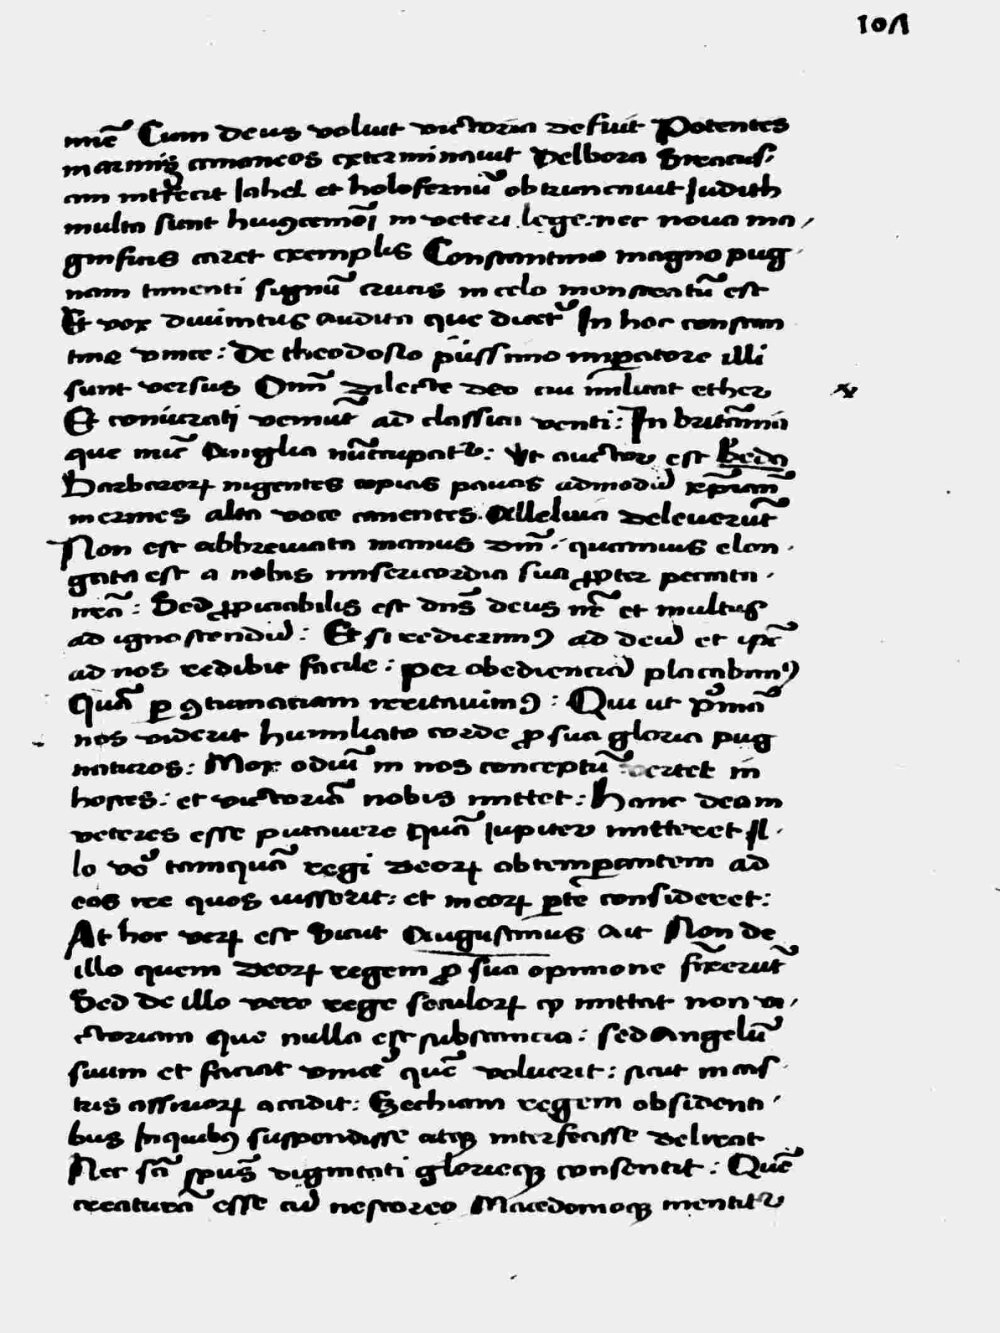 10Λ
miẽ Cum deus voluit victoria defuit Potentes
in armis amoneos exterminauit Delbora
am interfecit Iahel et holofernũ obtruncauit Iudith
multa sunt huiꝰcemõi in veteri lege: nec noua ma
gnificis caret exemplis Constantino magno pug
nam timenti signũ crucis in celo monstratũ est
Et vox diuinitus audita que dicet In hoc constan
tine vince: De theodosio piissimo imperatore illi
sunt versus Oĩm dilecte deo cui militat ether
Et coniurati veniũt ad classica venti: In britãnia
que nũcupatur: Vt auctor est Beda
Barbaroꝝ ingentes copias paucas admodũ xp̃iani
inermes alta voce canentes Alleluia deleuerũt
Non est abbreuiata manus dñi: quamuis elon
gata est a nobis misericordia sua ꝓpter peccata
nrã: Sed ꝓpiciabilis est dñs deus nr̃ et multus
ad ignoscendũ: Et si redierimꝰ ad deũ et ip̃e
ad nos redibit facile: per obedienciã placabimꝰ
Quẽ ꝑ ꝯtumaciam irritauimꝰ: Qui ut pͥmũ
nos viderit humiliato corde ꝓ sua gloria pug
naturos: Mox odiũ in nos conceptũ vertet in
hostes: et victoriã nobis mittet: Hanc deam
veteres esse putauere quã Iupiter mitteret Il
lo vͦo tamquã regi deoꝝ obtemperantem ad
eos ire quos iusserit: et in eoꝝ ꝑte consideret:
At hoc veꝝ est sicut Augustinus ait Non de
illo quem deoꝝ regem ꝓ sua opinione finxerũt
Sed de illo vero rege seculoꝝ qͥ mittat non vi
ctoriam que nulla est substancia: sed Angelũ
suum et faciat vincere quẽ voluerit: sicut in cas
tris assirioꝝ accidit: Ezechiam regem obsidenti
bus In quibꝰ suspendisse atqꝫ interfecisse
Nec sc̃i sp̃us dignitati glorieqꝫ consentit: Quẽ
creaturã esse cũ nestoreo Macedonioqꝫ mentitͬ